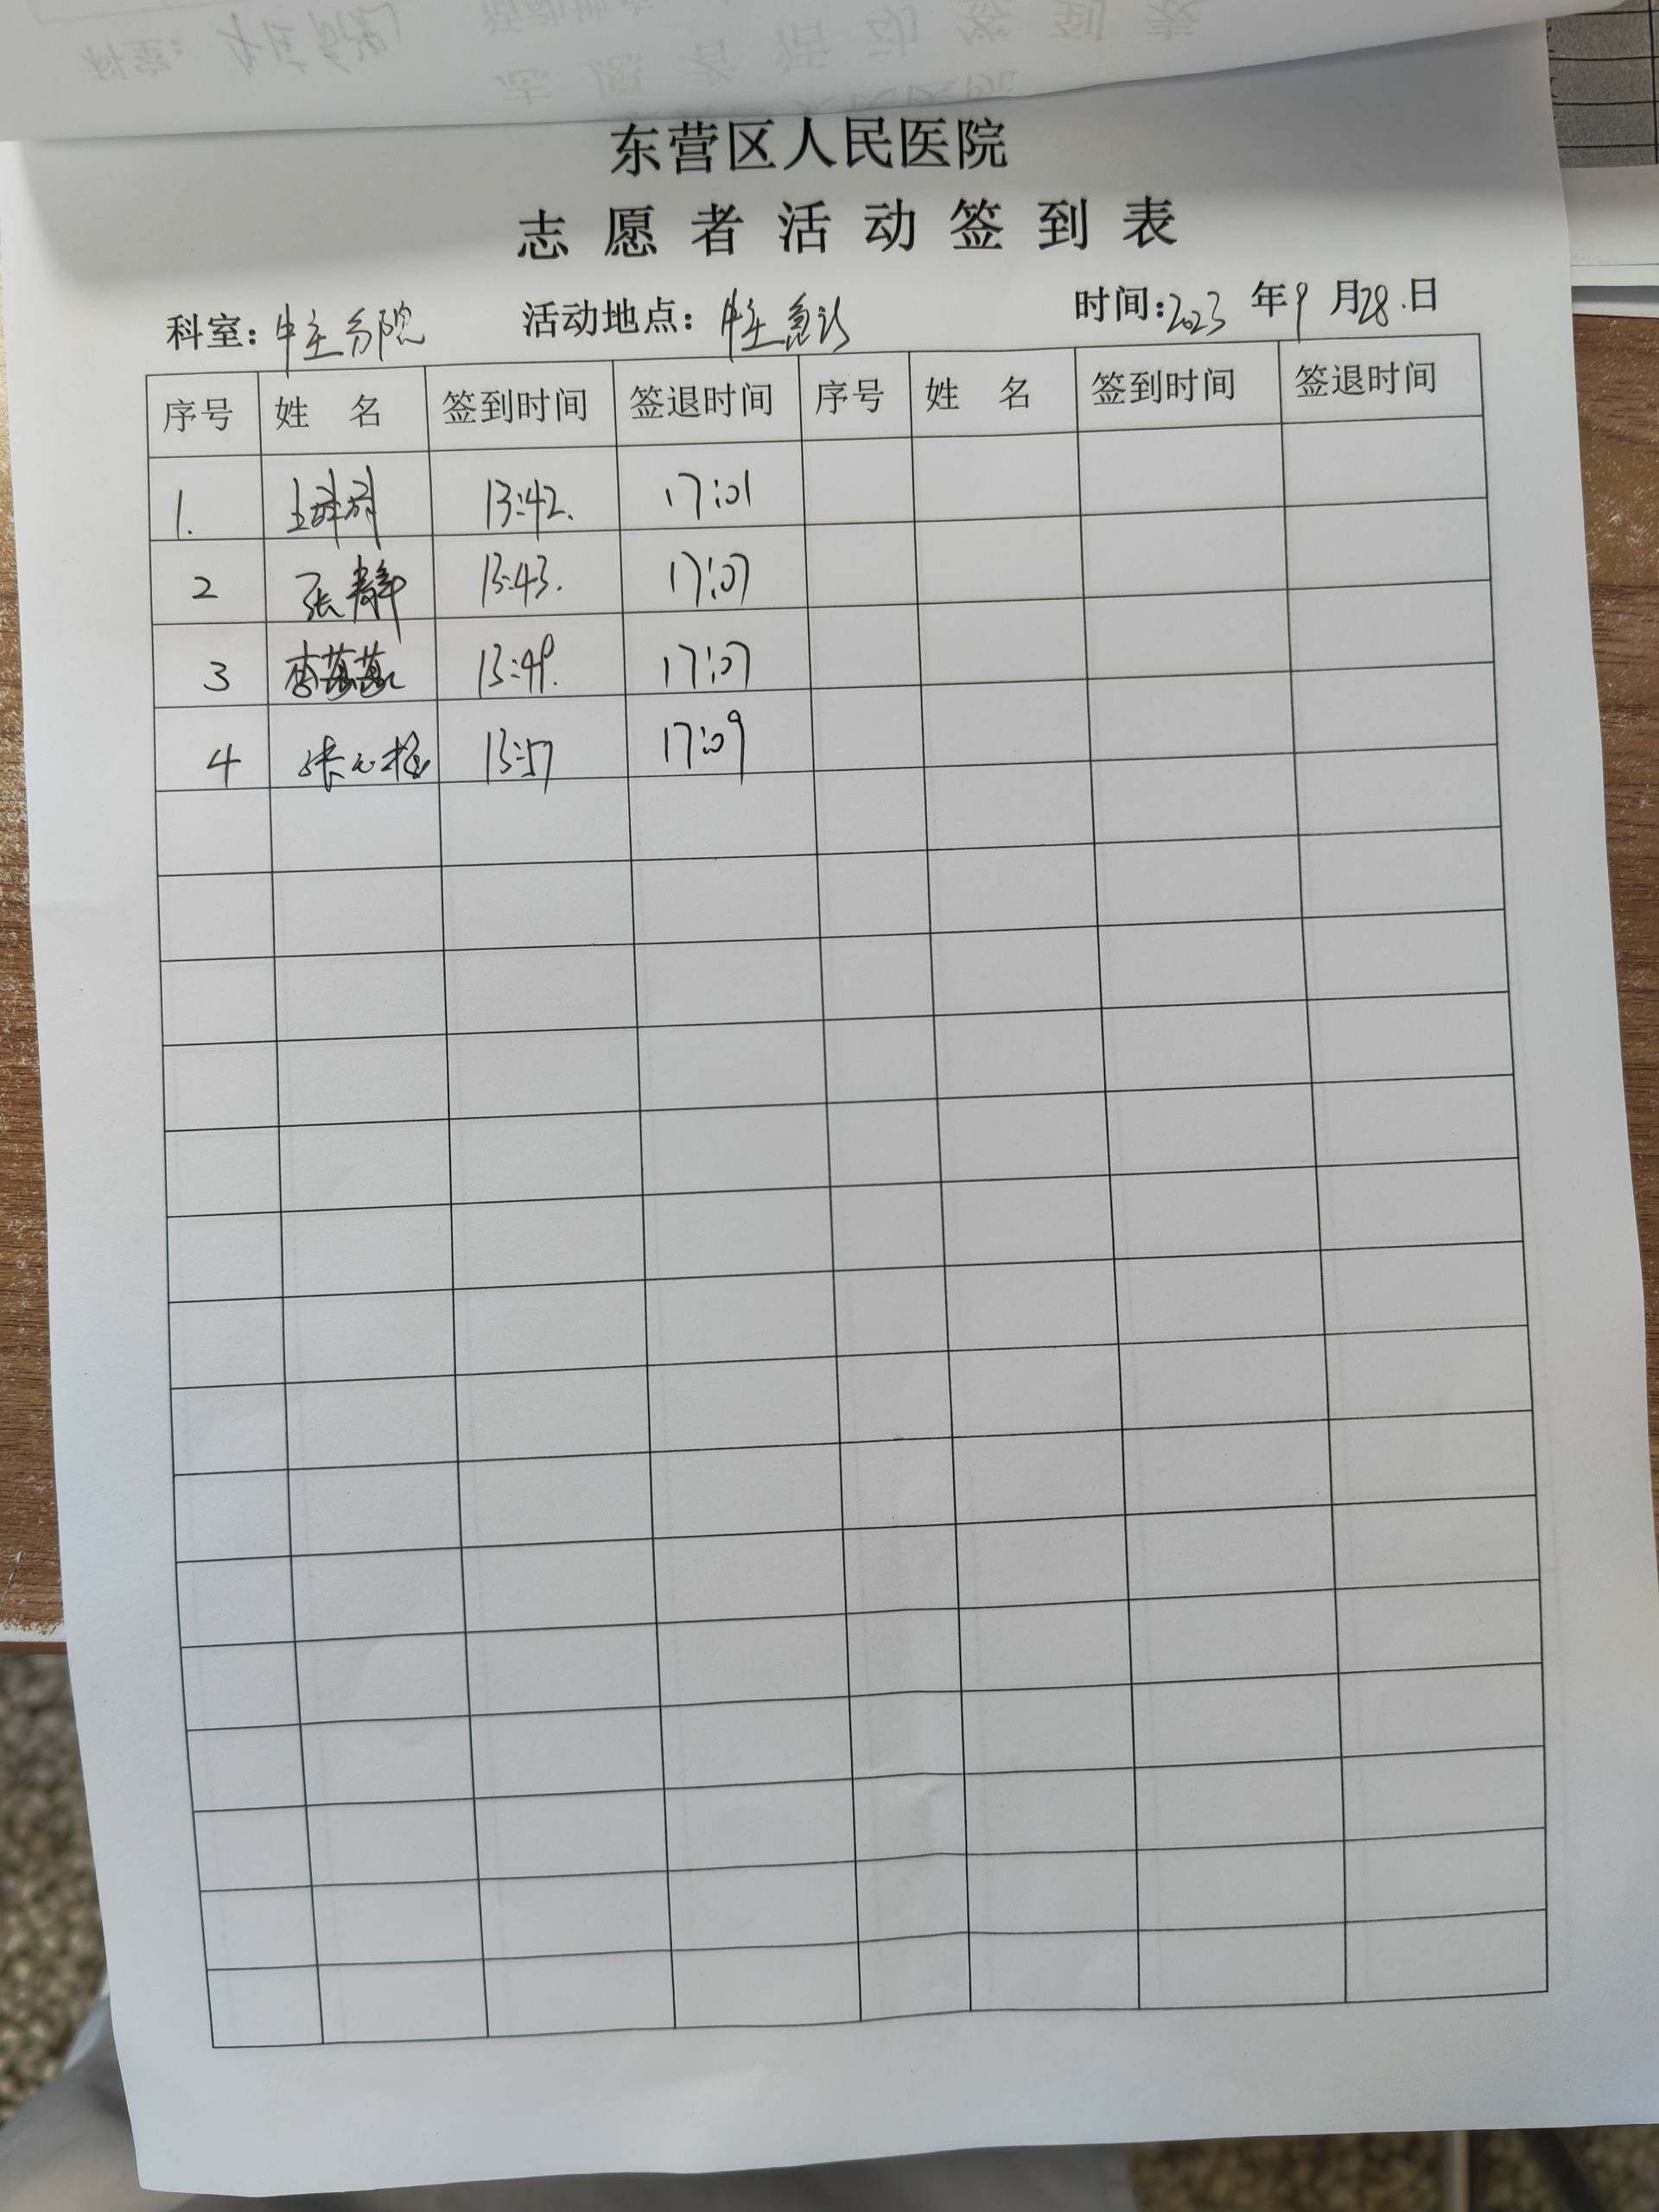 东营区人民医院
志愿者活动签到表
科室：牛庄分院 活动地点：牛庄急诊 时间：2023年9月28.日
序号 姓名 签到时间 签退时间 序号 姓名 签到时间 签退时间
1. 13:42. 17:01
2 张静 13:43. 17:07
3 李蕊蕊 13:49. 17:07
4 13:57 17:09